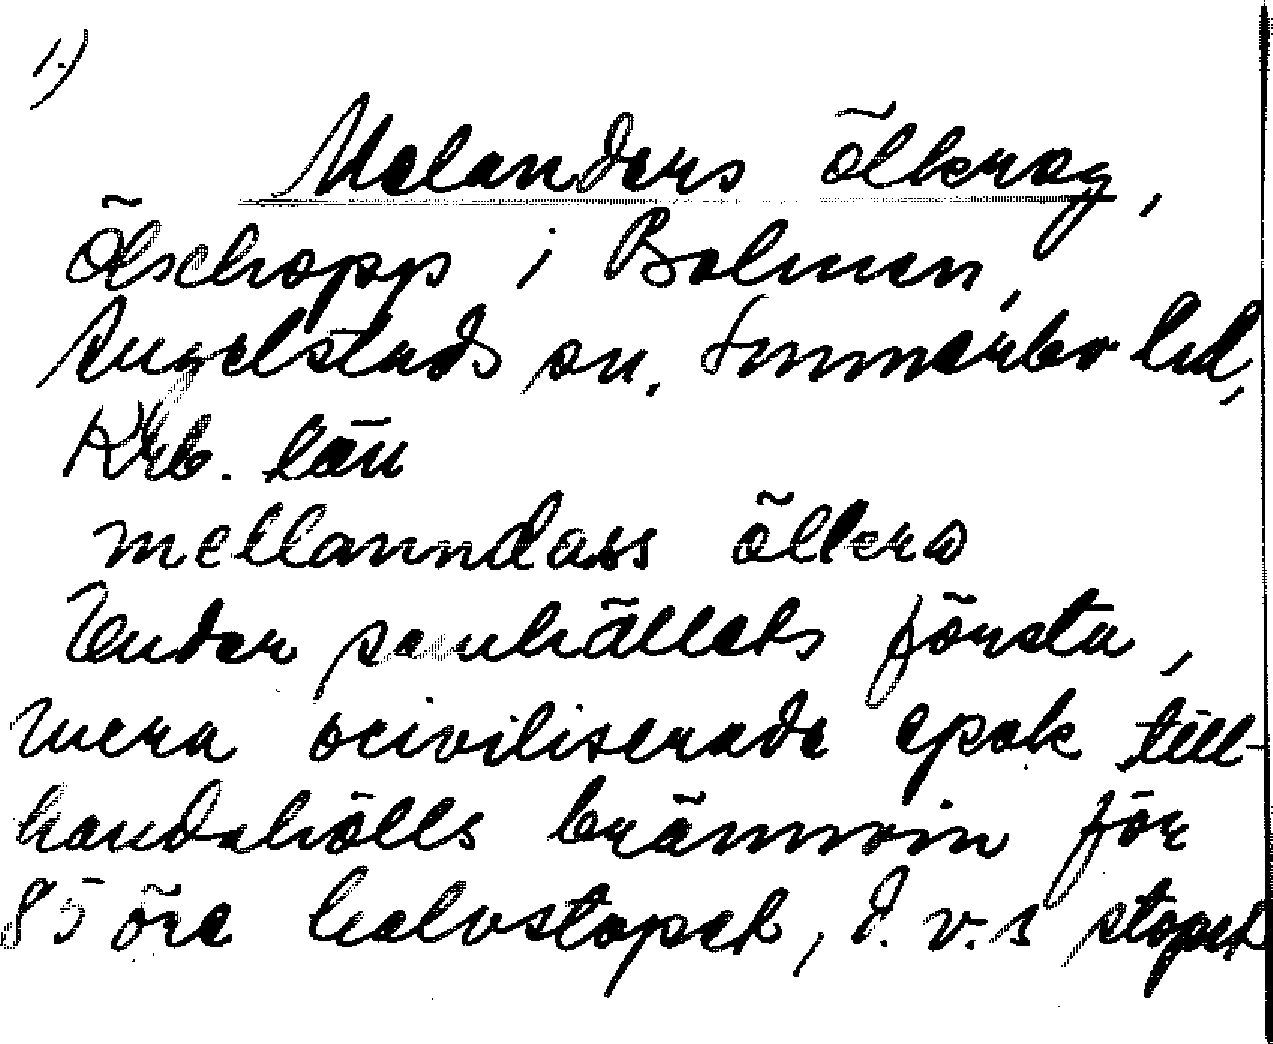 1.)
Melanders ölkrog,
Ölschapp i Bolmen,
Angelstads sn, Sunnerbo hd,
Krb. län
mellanndass ölkrw
Under samhällets första,
mera ociviliserade epok till-
handahölls brännvin för
85 öre halvstopet, d.v.s stopet